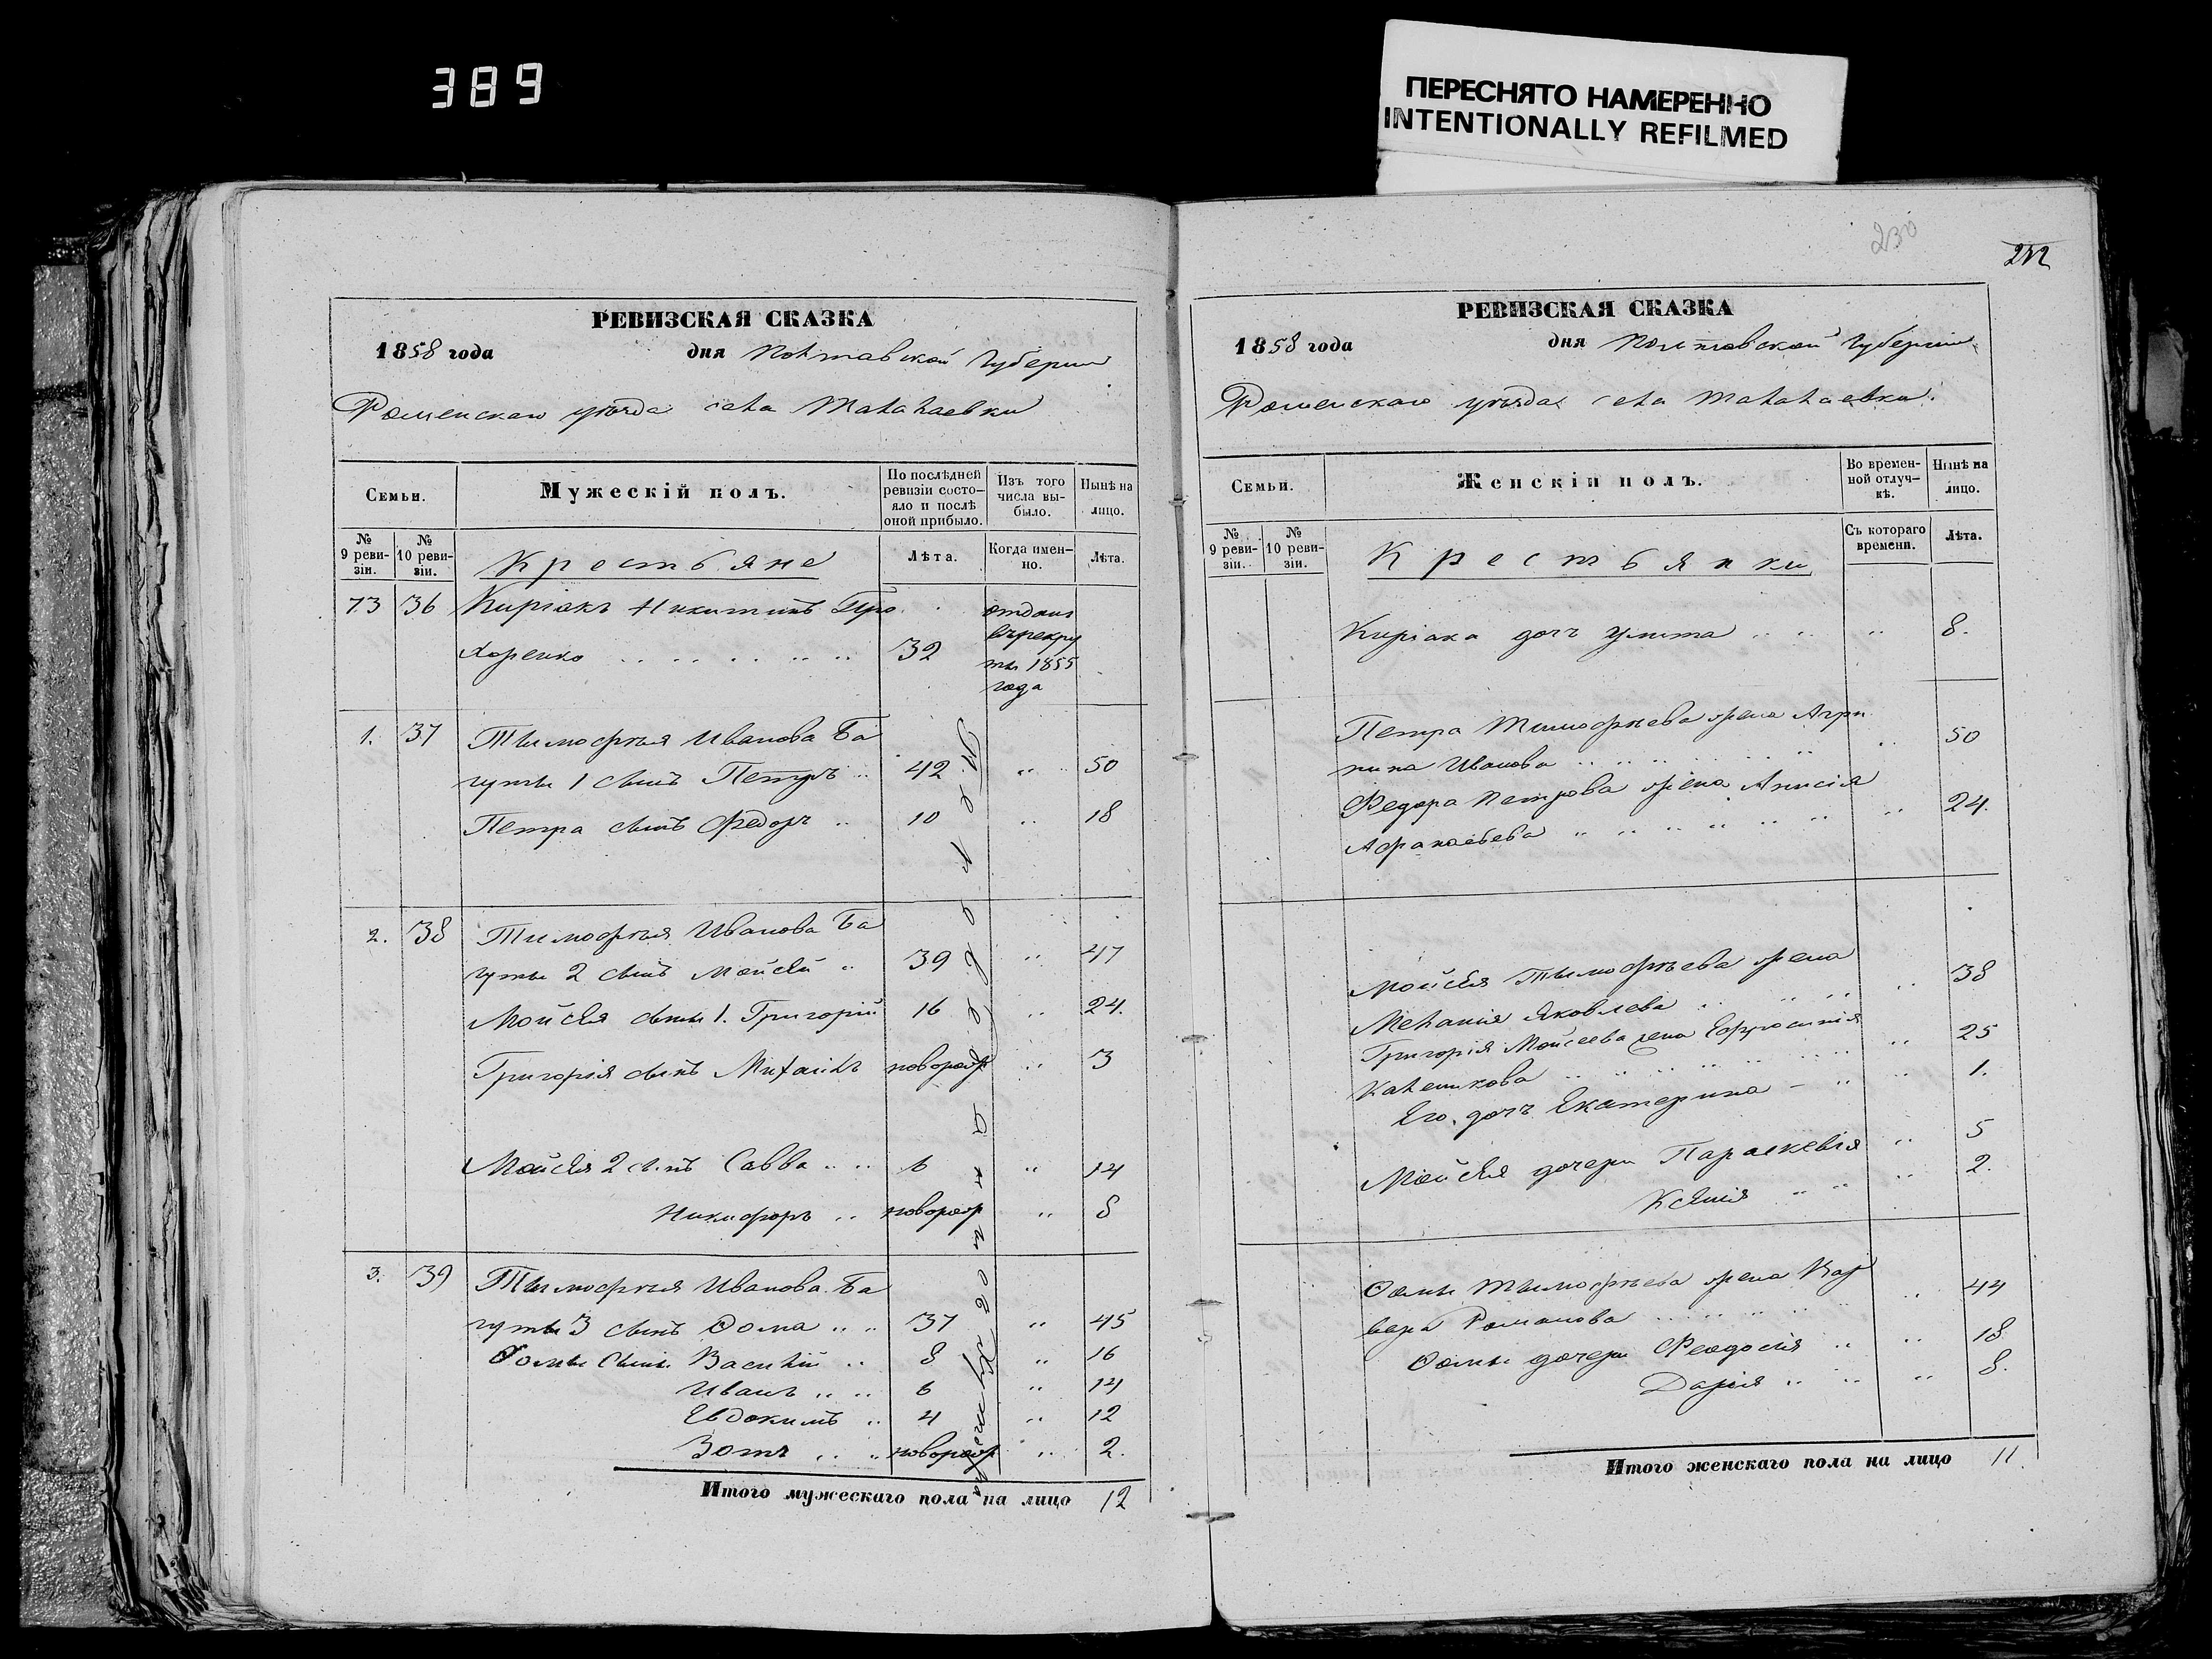 389
ПЕРЕСНЯТО НАМЕРЕННО
INTENTIONALLY REFILMED
230
РЕВИЗСКАЯ СКАЗКА
1858 года дня Полтавской Губернии
Роменскаго уѣзда села Талалаевки
Семьи.
Мужескій полъ.
По послѣдней ревизіи состо-яло и послѣ оной прибыло.
Изъ того числа вы-было.
Нынѣ на лицо.
№ 9 реви-зіи.
№ 10 реви-зіи.
Крестьяне
Лѣта.
Когда имен-но.
Лѣта.
73 36 Киріакъ Никитинъ Про
хоренко 32 отданъ въ рекру ты 1855 года
1. 37 Тимофѣя Иванова Ба
гуты 1 сынъ Петръ 42 " 50
Петра сынъ Федоръ 10 " 18
2. 38 Тимофѣя Иванова Ба
гуты 2 сынъ Мойсей 39 " 47
Мойсея сыны 1. Григорій 16 " 24.
Григорія сынъ Михаилъ новорож " 3
Мойсея 2 сынъ Савва 6 " 14
Никифоръ новорож " 8
3. 39 Тимофѣя Иванова Ба
гуты 3 сынъ Фома 37 " 45
Фомы сыны Василій 8 " 16
Иванъ 6 " 14
Евдокимъ 4 " 12
Зотъ новорож " 2.
Итого мужескаго пола на лицо 12
РЕВИЗСКАЯ СКАЗКА
1858 года дня Полтавской Губерніи
Роменскаго уѣзда села Талалаевки.
Семьи.
Женскій полъ.
Во времен-ной отлуч-кѣ.
Нынѣ на лицо.
№ 9 реви-зіи.
№ 10 реви-зіи.
Крестьянки
Съ котораго времени.
Лѣта.
Киріака дочь Улита " 8.
Петра Тимофѣева жена Агри
пина Иванова " 50
Федора Петрова жена Анисія
Афанасьева " 24.
Мойсея Тимофѣева жена
Меланія Яковлева " 38
Григорія Мойсеева жена Ефросинія
Каленикова " 25
Его дочь Екатерина " 1.
Мойсея дочери Параскевія " 5
Ксенія " 2.
Фомы Тимофѣева жена Вар
вара Романова " 44
Фомы дочери Феодосія " 18
Дарія " 8.
Итого женскаго пола на лицо 11.